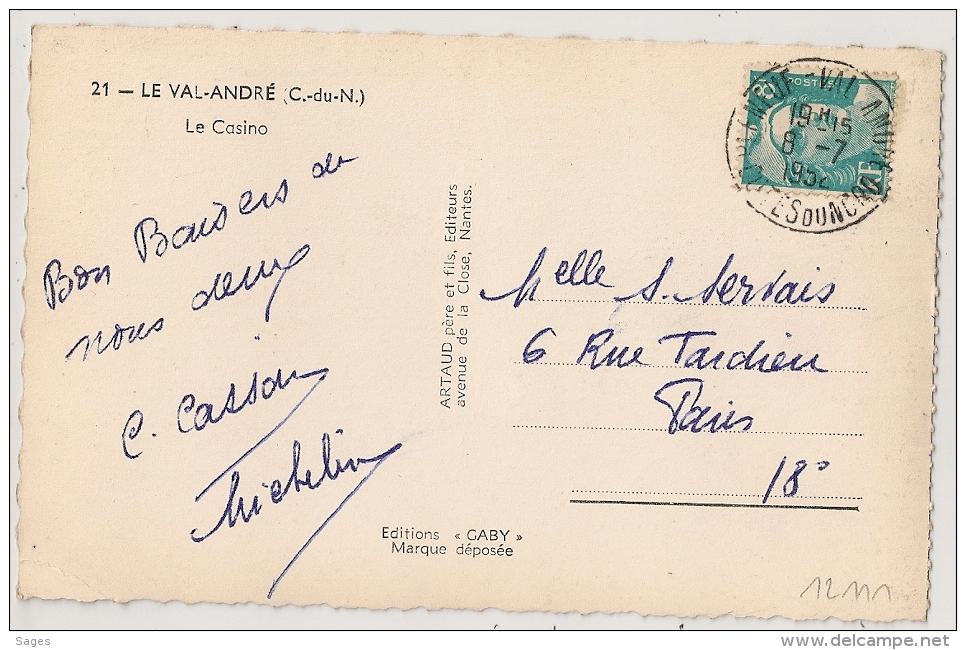 21 — LE VAL-ANDRÉ (C.-du-N.)
Le Casino
Bon Baisers de
nous deux
C. Casson
Micheline
ARTAUD père et fils, Editeurs
avenue de la Close, Nantes.
Editions « GABY »
Marque déposée
POSTES
VAL ANDRE
19H15
8 -7
1952
CÔTES DU NORD
Melle S. Servais
6 Rue Tardieu
Paris
18e
Sages
www.delcampe.net